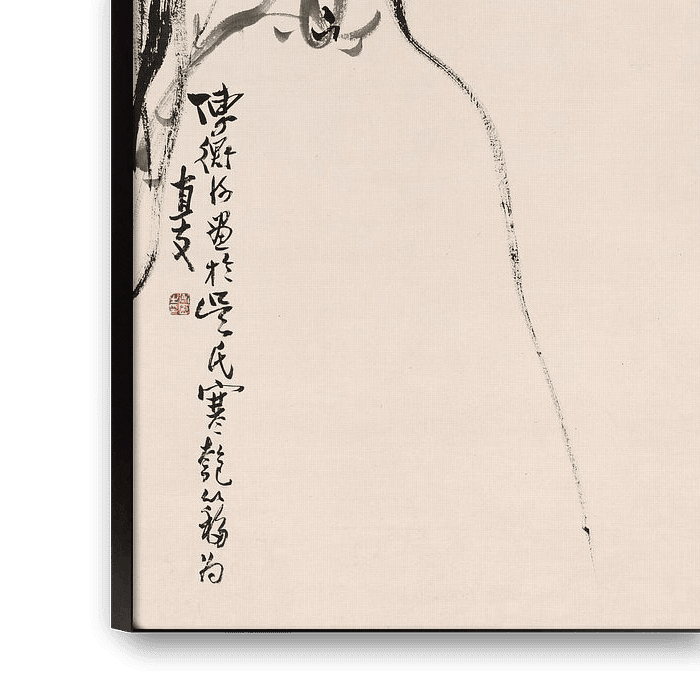 陳衡恪畫於吳氏寒匏簃為
直支